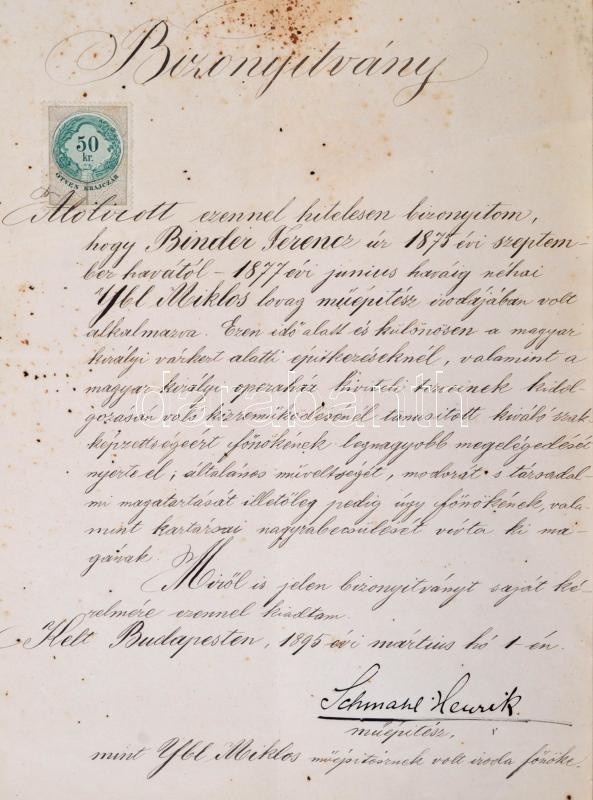 Bizonyitvány
50
kr.
ÖTVEN KRAJCZÁR
Alólirott ezennel hitelesen bizonyitom,
hogy Binder Ferencz úr 1875 évi szeptem-
ber havától - 1877 évi junius haváig néhai
Ybl Miklos lovag műépitész irodájában volt
alkalmazva. Ezen idő alatt és különösen a magyar
királyi várkert alatti épitkezéseknél, valamint a
magyar királyi operaház kiviteli terveinek kidol-
gozásán volt közreműködésénél tanusitott kiváló szak-
képzettségeért főnökének legnagyobb megelégedését
nyerte el; általános műveltségét, modorát s társadal-
mi magatartását illetőleg pedig úgy főnökének, vala-
mint kartársai nagyrabecsülését vivta ki ma-
gának.
Miről is jelen bizonyitványt saját ké-
relmére ezennel kiadtam.
Kelt Budapesten, 1895 évi március hó 1-én.
Schmahl Henrik
műépitész,
mint Ybl Miklos műépitésznek volt iroda főnöke.
darabanth